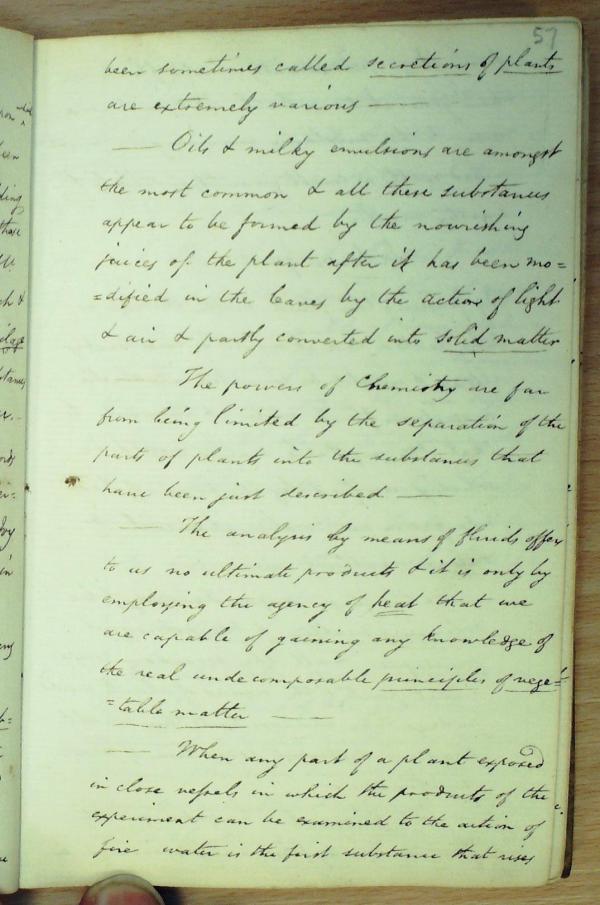 57
been sometimes called secretions of plants
are extremely various —
— Oils & milky emulsions are amongst
the most common & all these substances
appear to be formed by the nourishing
juices of the plant after it has been mo=
=dified in the leaves by the action of light
& air & partly converted into solid matter
The powers of Chemistry are far
from being limited by the separation of the
parts of plants into the substances that
have been just described —
— The analysis by means of fluids offers
to us no ultimate products & it is only by
employing the agency of heat that we
are capable of gaining any knowledge of
the real undecomposable principles of vege=
=table matter —
— When any part of a plant exposed
in close vessels in which the products of the
experiment can be examined to the action of
fire water is the first substance that rises